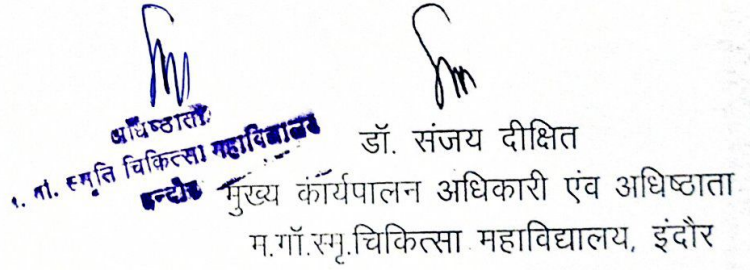 अधिष्ठाता
म. गां. स्मृति चिकित्सा महाविद्यालय
इन्दौर
डॉ. संजय दीक्षित
मुख्य कार्यपालन अधिकारी एंव अधिष्ठाता
म.गॉ.स्मृ.चिकित्सा महाविद्यालय, इंदौर